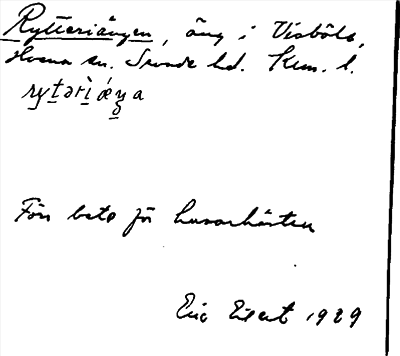 Rytteriängen, äng i Visböle,
Huvna sn. Sunds hd. Krm. l.
rytəriæŋa
Förr bete för husarhästen
Eric Eilert 1929